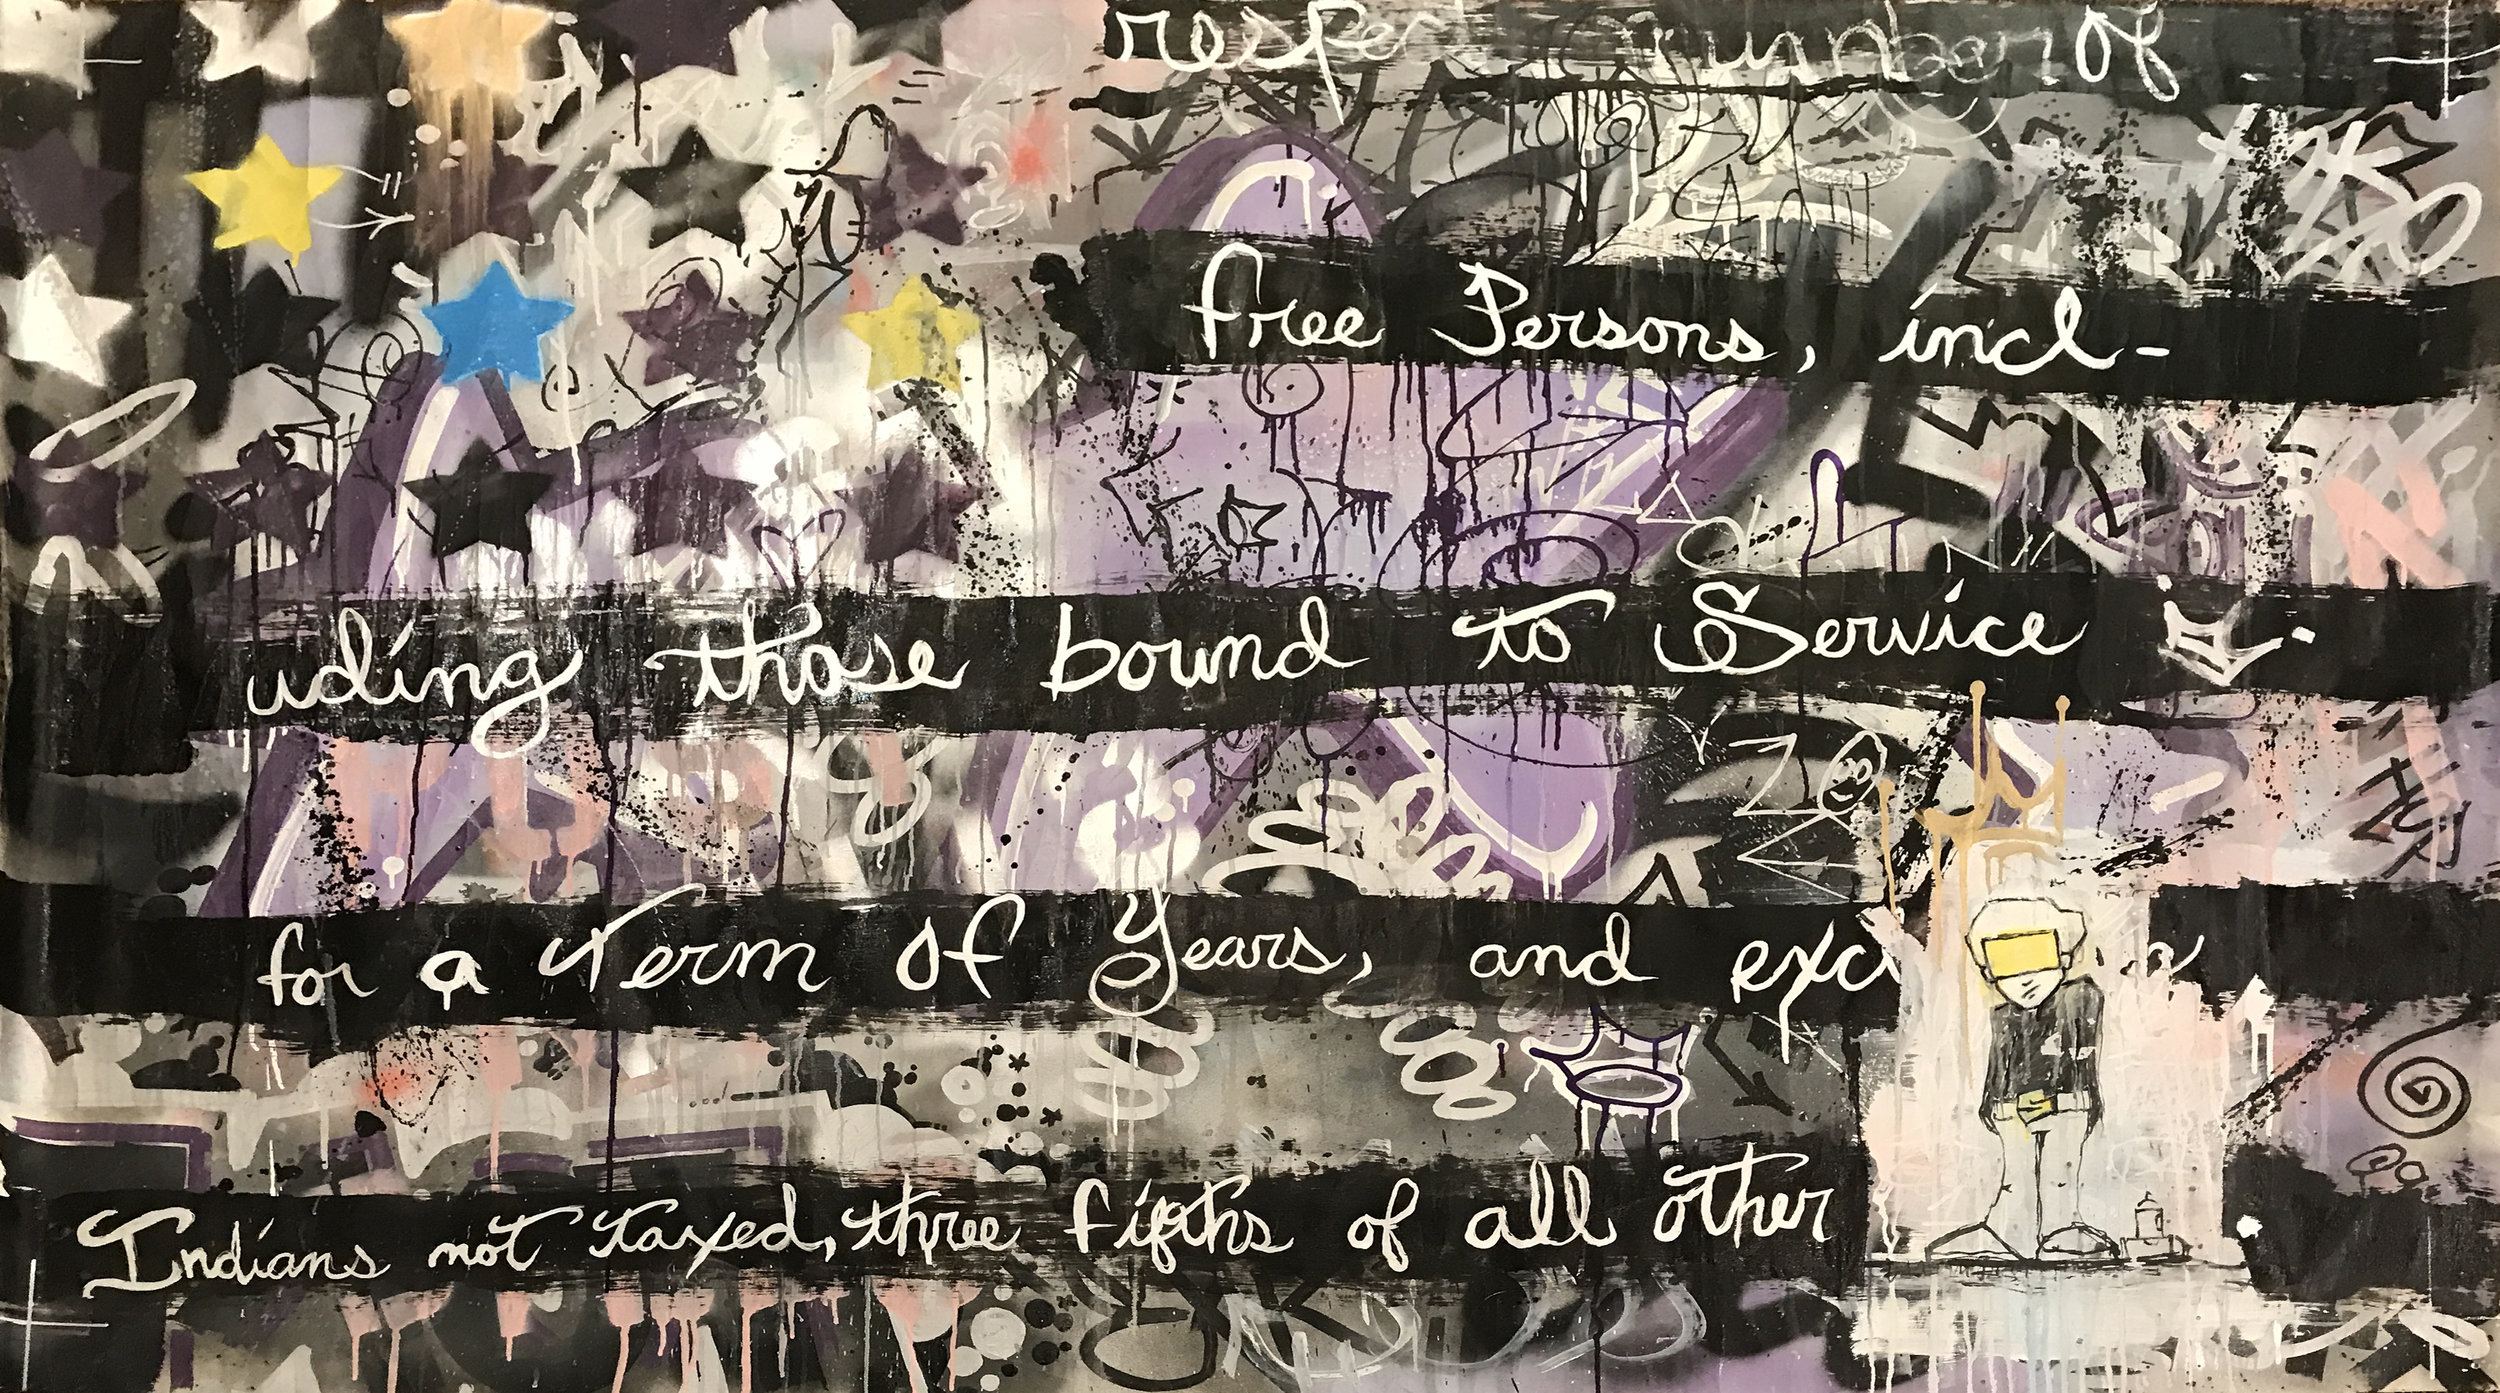 respe number of
free Persons, incl-
uding those bound to Service
for a Term of Years, and exc
Indians not taxed, three fifths of all other